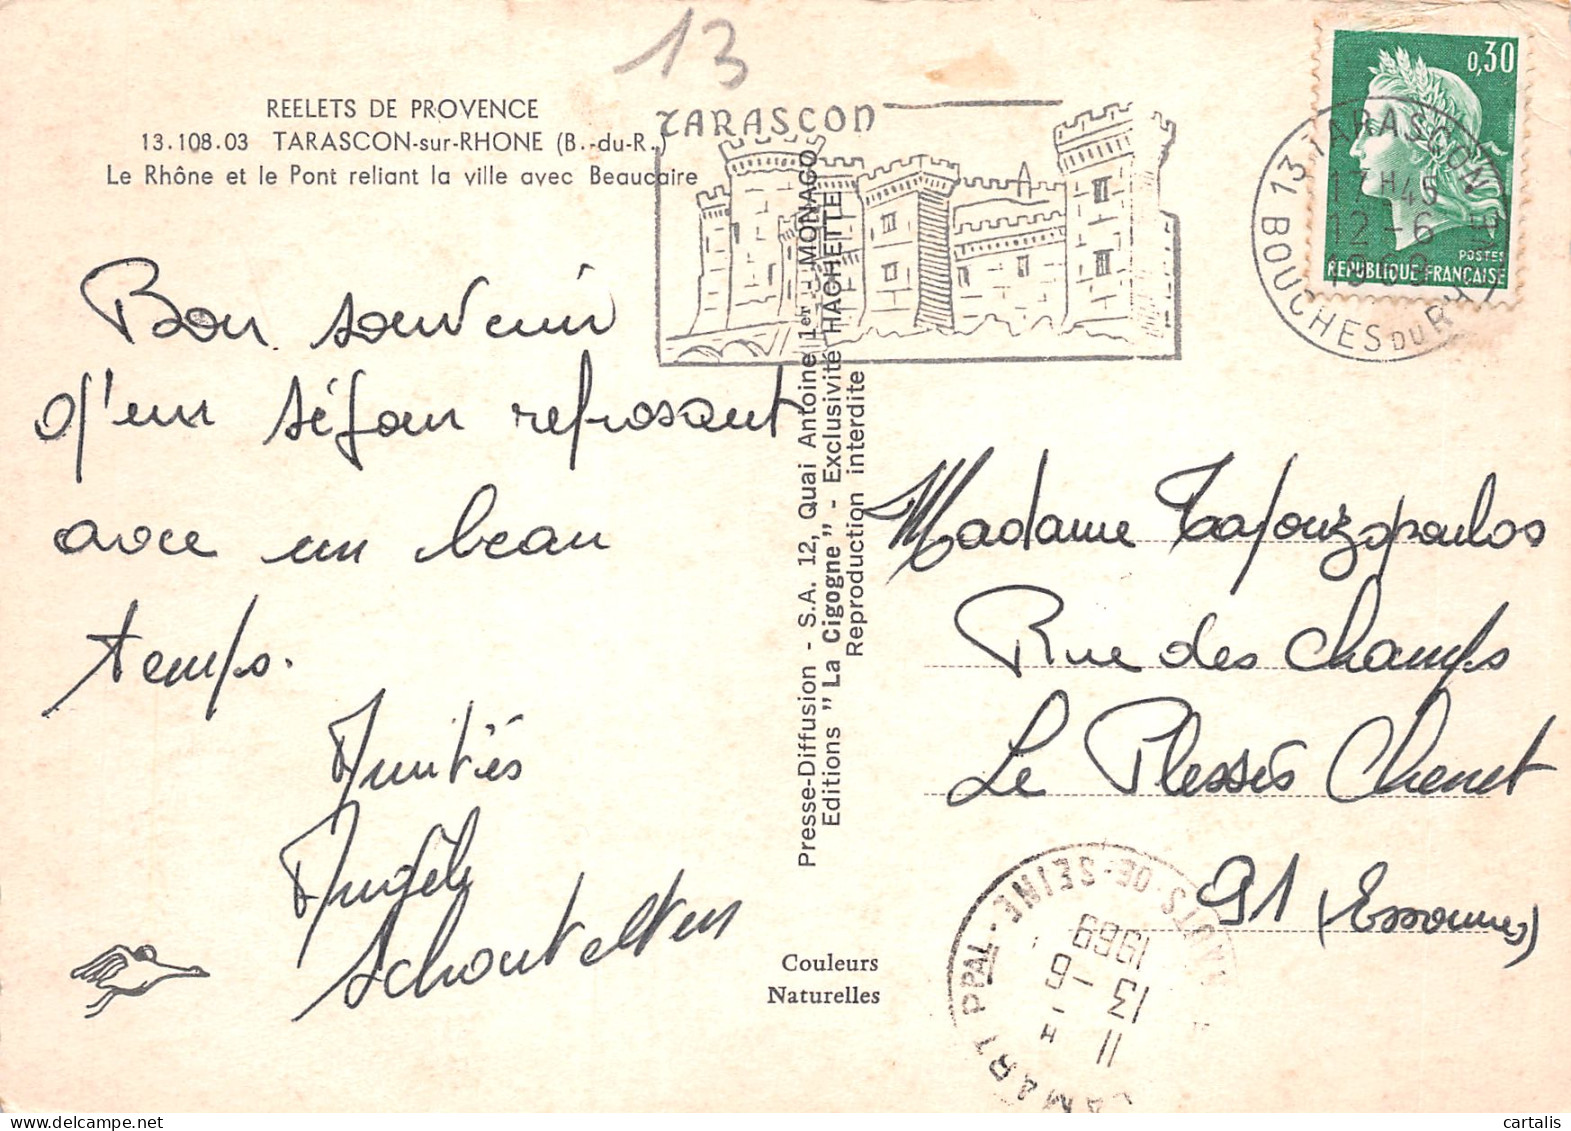 13
REELETS DE PROVENCE
13.108.03 TARASCON-sur-RHONE (B.-du-R.)
Le Rhône et le Pont reliant la ville avec Beaucaire
TARASCON
0,30
POSTES
REPUBLIQUE FRANÇAISE
13 TARASCON
17 H 45
12 - 6
1969
BOUCHES DU RHONE
Bon souvenir
d'un séjour reposant
avec un beau
temps.
Amitiés
Angèle
Presse-Diffusion - S.A. 12, Quai Antoine 1er - MONACO
Editions "La Cigogne" - Exclusivité HACHETTE
Reproduction interdite
Madame Tafouzopoulos
Rue des Champs
Le Plessis Chenet
91 (Essonnes)
PPAL - HAUTS-DE-SEINE
11 H
13 - 6
1969
Couleurs
Naturelles
cartalis
delcampe.net